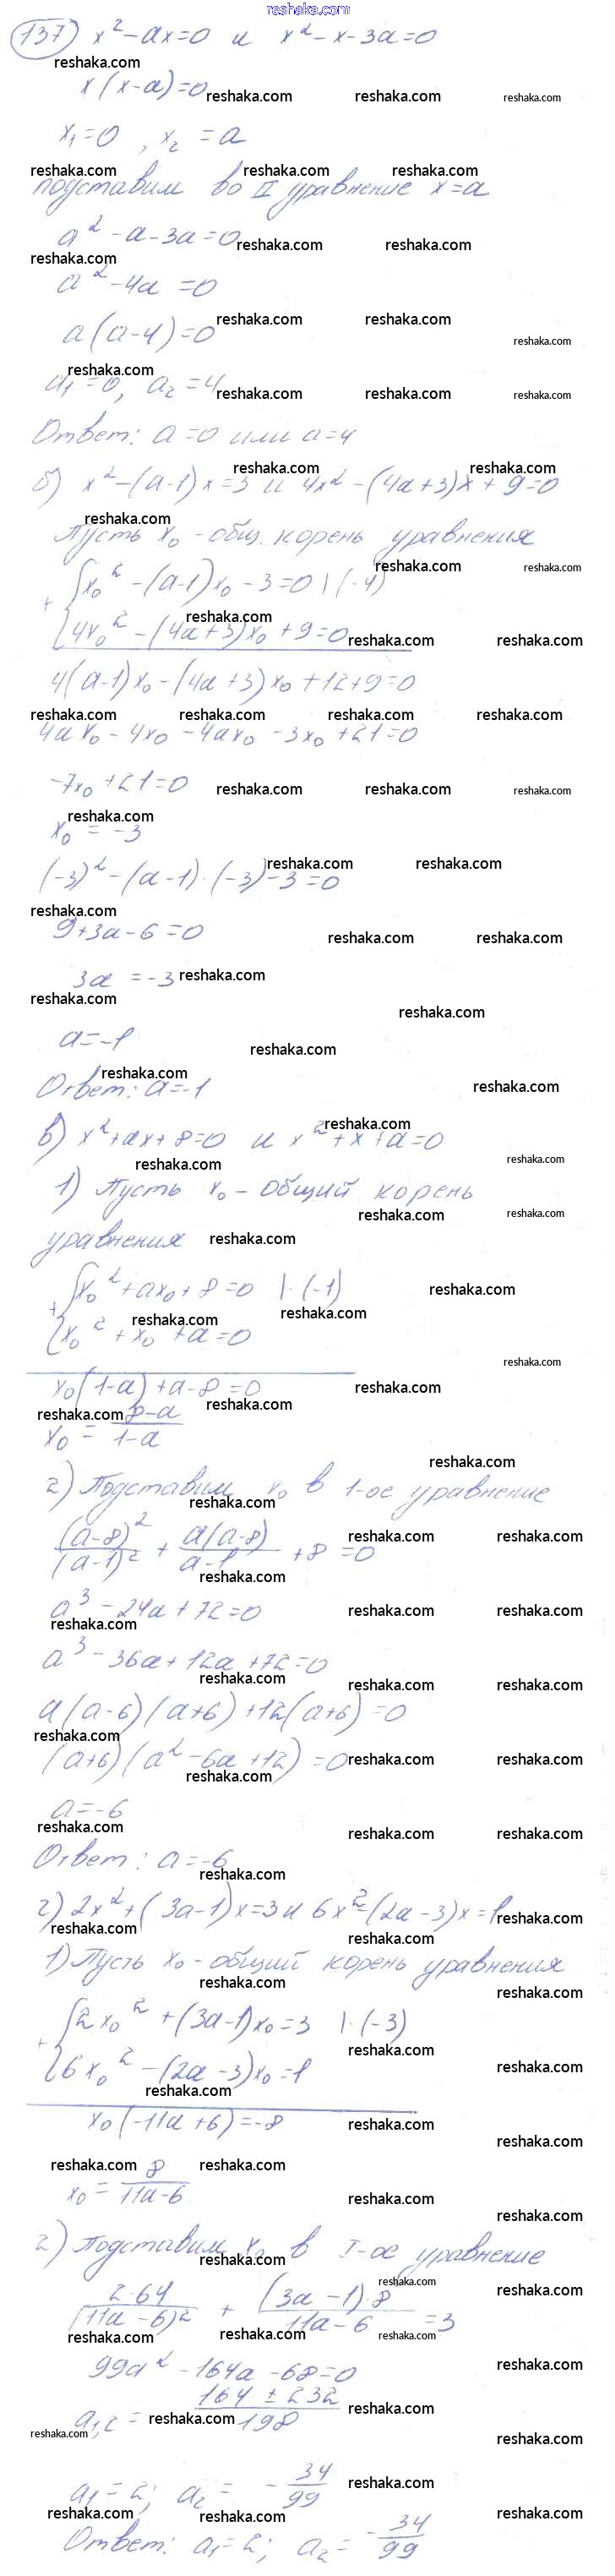 reshaka.com
137) x² - ax = 0 и x² - x - 3a = 0
x(x-a) = 0
x₁ = 0, x₂ = a
подставим во II уравнение x = a
a² - a - 3a = 0
a² - 4a = 0
a(a-4) = 0
a₁ = 0, a₂ = 4
Ответ: a = 0 или a = 4
б) x² - (a-1)x = 3 и 4x² - (4a+3)x + 9 = 0
Пусть x₀ - общ. корень уравнения
+ { x₀² - (a-1)x₀ - 3 = 0 | (-4)
{ 4x₀² - (4a+3)x₀ + 9 = 0
4(a-1)x₀ - (4a+3)x₀ + 12 + 9 = 0
4ax₀ - 4x₀ - 4ax₀ - 3x₀ + 21 = 0
-7x₀ + 21 = 0
x₀ = -3
(-3)² - (a-1)·(-3) - 3 = 0
9 + 3a - 6 = 0
3a = -3
a = -1
Ответ: a = -1
в) x² + ax + 8 = 0 и x² + x + a = 0
1) Пусть x₀ - общий корень
уравнения
+ { x₀² + ax₀ + 8 = 0 | · (-1)
{ x₀² + x₀ + a = 0
x₀(1-a) + a - 8 = 0
x₀ = (8-a)/(1-a)
2) Подставим x₀ в 1-ое уравнение
(a-8)²/(a-1)² + a(a-8)/(a-1) + 8 = 0
a³ - 24a + 72 = 0
a³ - 36a + 12a + 72 = 0
a(a-6)(a+6) + 12(a+6) = 0
(a+6)(a² - 6a + 12) = 0
a = -6
Ответ: a = -6
г) 2x² + (3a-1)x = 3 и 6x² - (2a-3)x = 1
1) Пусть x₀ - общий корень уравнения
+ { 2x₀² + (3a-1)x₀ = 3 | · (-3)
{ 6x₀² - (2a-3)x₀ = 1
x₀(-11a+6) = -8
x₀ = 8/(11a-6)
2) Подставим x₀ в I-ое уравнение
2·64/(11a-6)² + (3a-1)·8/(11a-6) = 3
99a² - 164a - 68 = 0
a₁,₂ = (164 ± 232)/198
a₁ = 2; a₂ = -34/99
Ответ: a₁ = 2; a₂ = -34/99